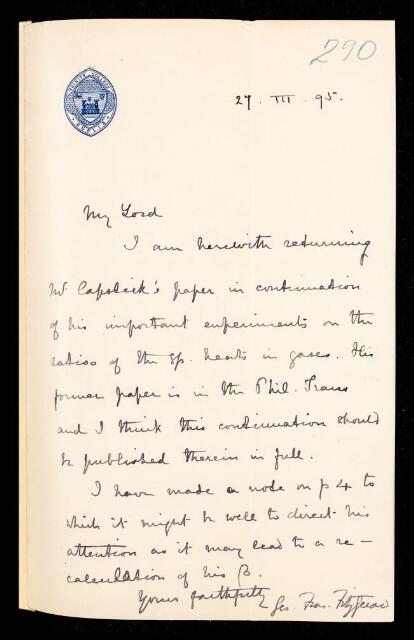 290
TRINITY COLLEGE
DUBLIN
27. III. 95.
My Lord
I am herewith returning
Mr Capstick's paper in continuation
of his important experiments on the
ratios of the sp. heats in gases. His
former paper is in the Phil. Trans
and I think this continuation should
be published therein in full.
I have made a note on p 4 to
which it might be well to direct his
attention as it may lead to a re-
calculation of his β.
Yours faithfully
Geo. Fras. Fitzgerald